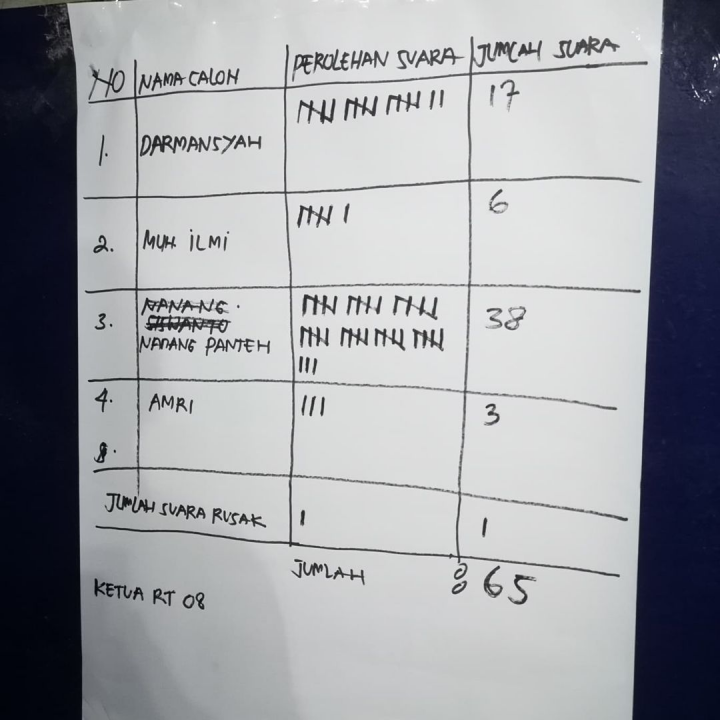 NO NAMA CALON PEROLEHAN SUARA JUMLAH SUARA
1. DARMANSYAH 17
2. MUH. ILMI 6
NANANG
SISWANTO
3. NANANG PANTEH 38
4. AMRI 3
JUMLAH SUARA RUSAK 1
JUMLAH : 65
KETUA RT 08